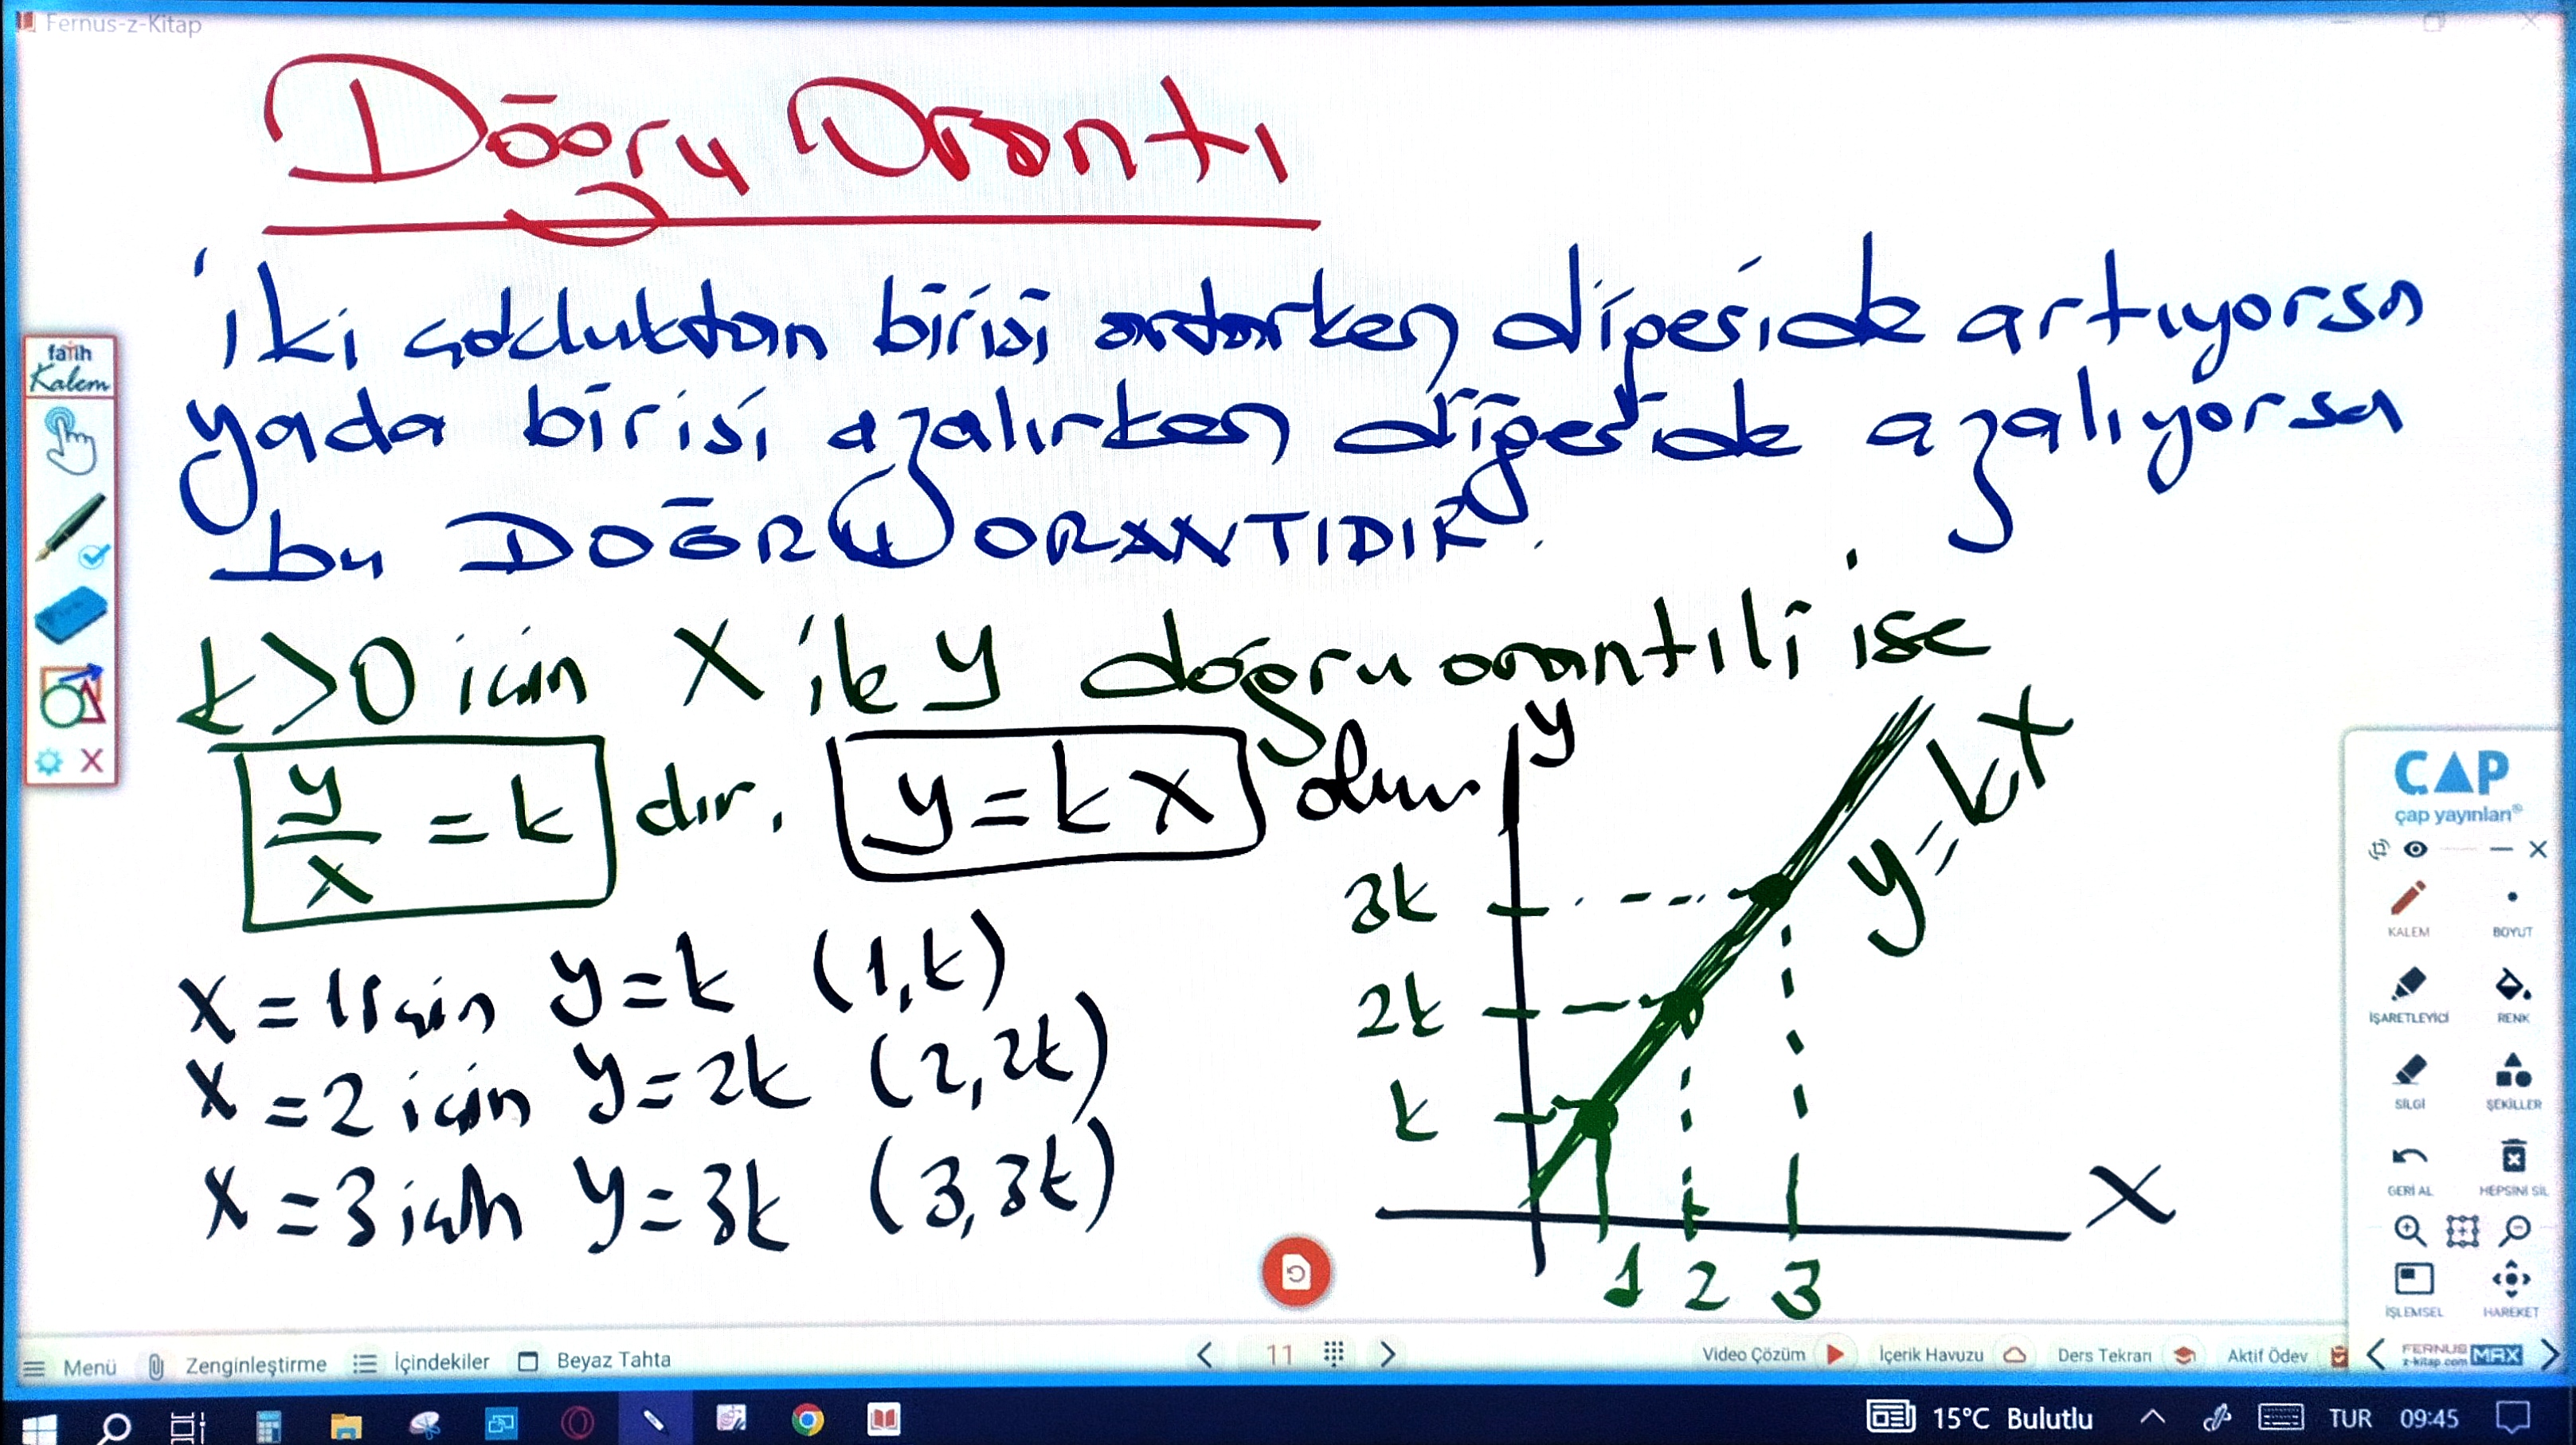 Fernus-z-Kitap
Doğru Orantı
iki çokluktan birisi artarken diğeride artıyorsa
yada birisi azalırken diğeride azalıyorsa
bu DOĞRU ORANTIDIR.
k>0 için x ile y doğru orantılı ise
y/x = k dır. y = k x olur.
x = 1 için y = k (1,k)
x = 2 için y = 2k (2,2k)
x = 3 için y = 3k (3,3k)
y
y = k.x
3k
2k
k
1 2 3
x
fatih
Kalem
ÇAP
çap yayınları®
KALEM BOYUT
İŞARETLEYİCİ RENK
SİLGİ ŞEKİLLER
GERİ AL HEPSİNİ SİL
İŞLEMSEL HAREKET
Menü Zenginleştirme İçindekiler Beyaz Tahta 11 Video Çözüm İçerik Havuzu Ders Tekrarı Aktif Ödev
FERNUS
z-kitap.com MAX
15°C Bulutlu TUR 09:45